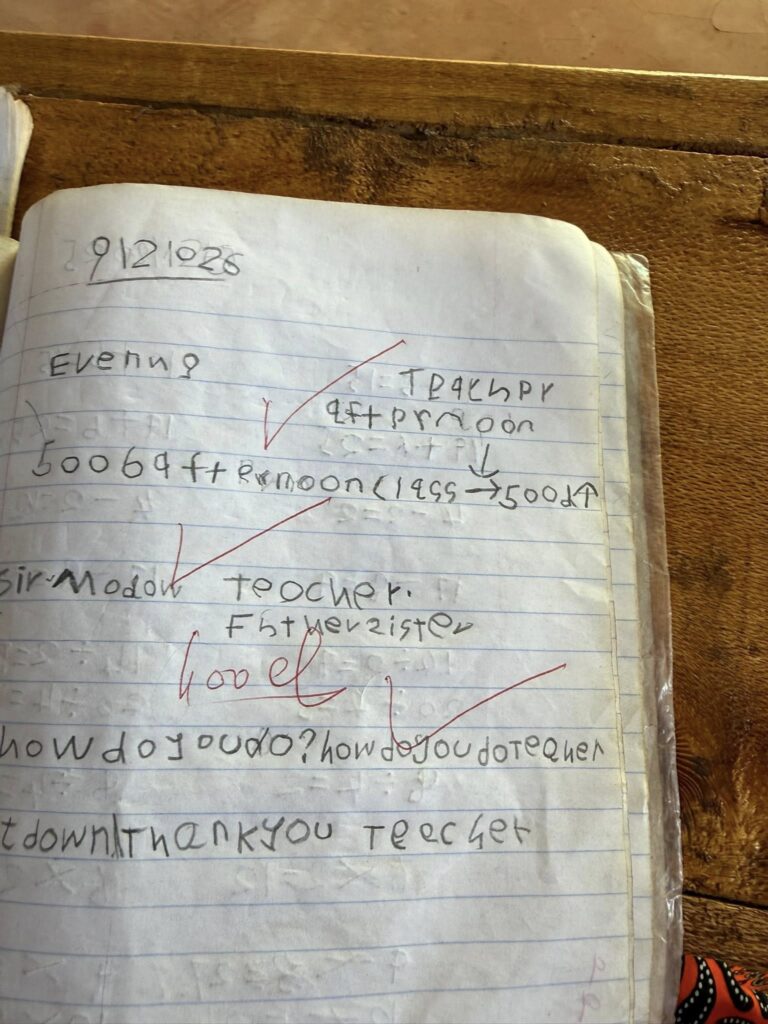 9121026
Evenng
Teacher
aftermoon
5006aftermoonclass → 500d↑
Sir.Modow teacher.
Fhtherzister
Good
howdoyoudo?howdoyoudoTeaher
tdown/Thankyou Teacher